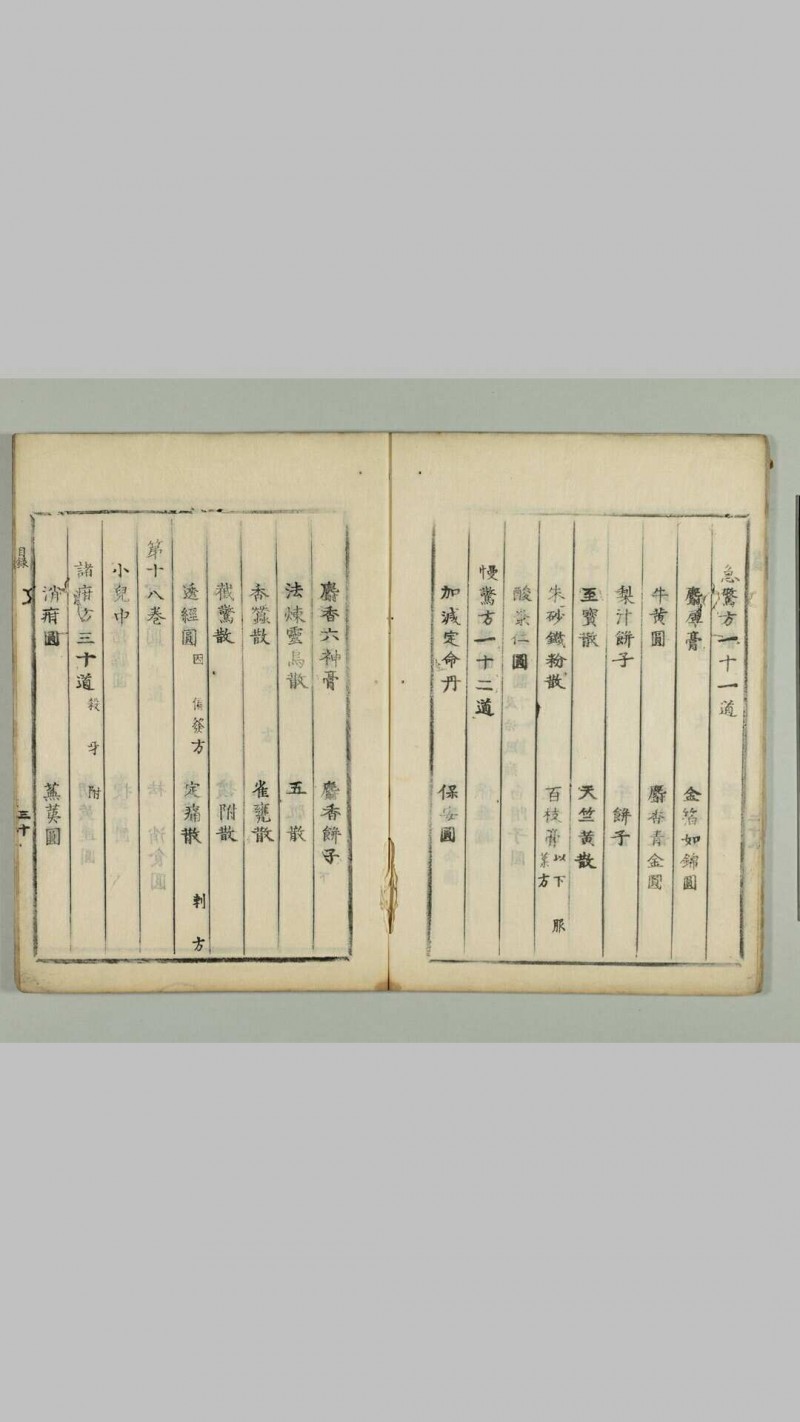 急驚方一十一道
麝犀膏 金箔如錦圓
牛黃圓 麝香青金圓
梨汁餅子 餅子
至寶散 天竺黃散
朱砂鐵粉散 百枝膏以下服藥方
酸棗仁圓
慢驚方一十二道
加減定命丹 保安圓
麝香六神膏 麝香餅子
法煉靈烏散 五散
香蠶散 雀甕散
截驚散 附散
透經圓因 發方 定痛散 刺方
第十八卷
小兒中
諸疳方三十道殺牙附
消疳圓 蕪荑圓
目錄
三十